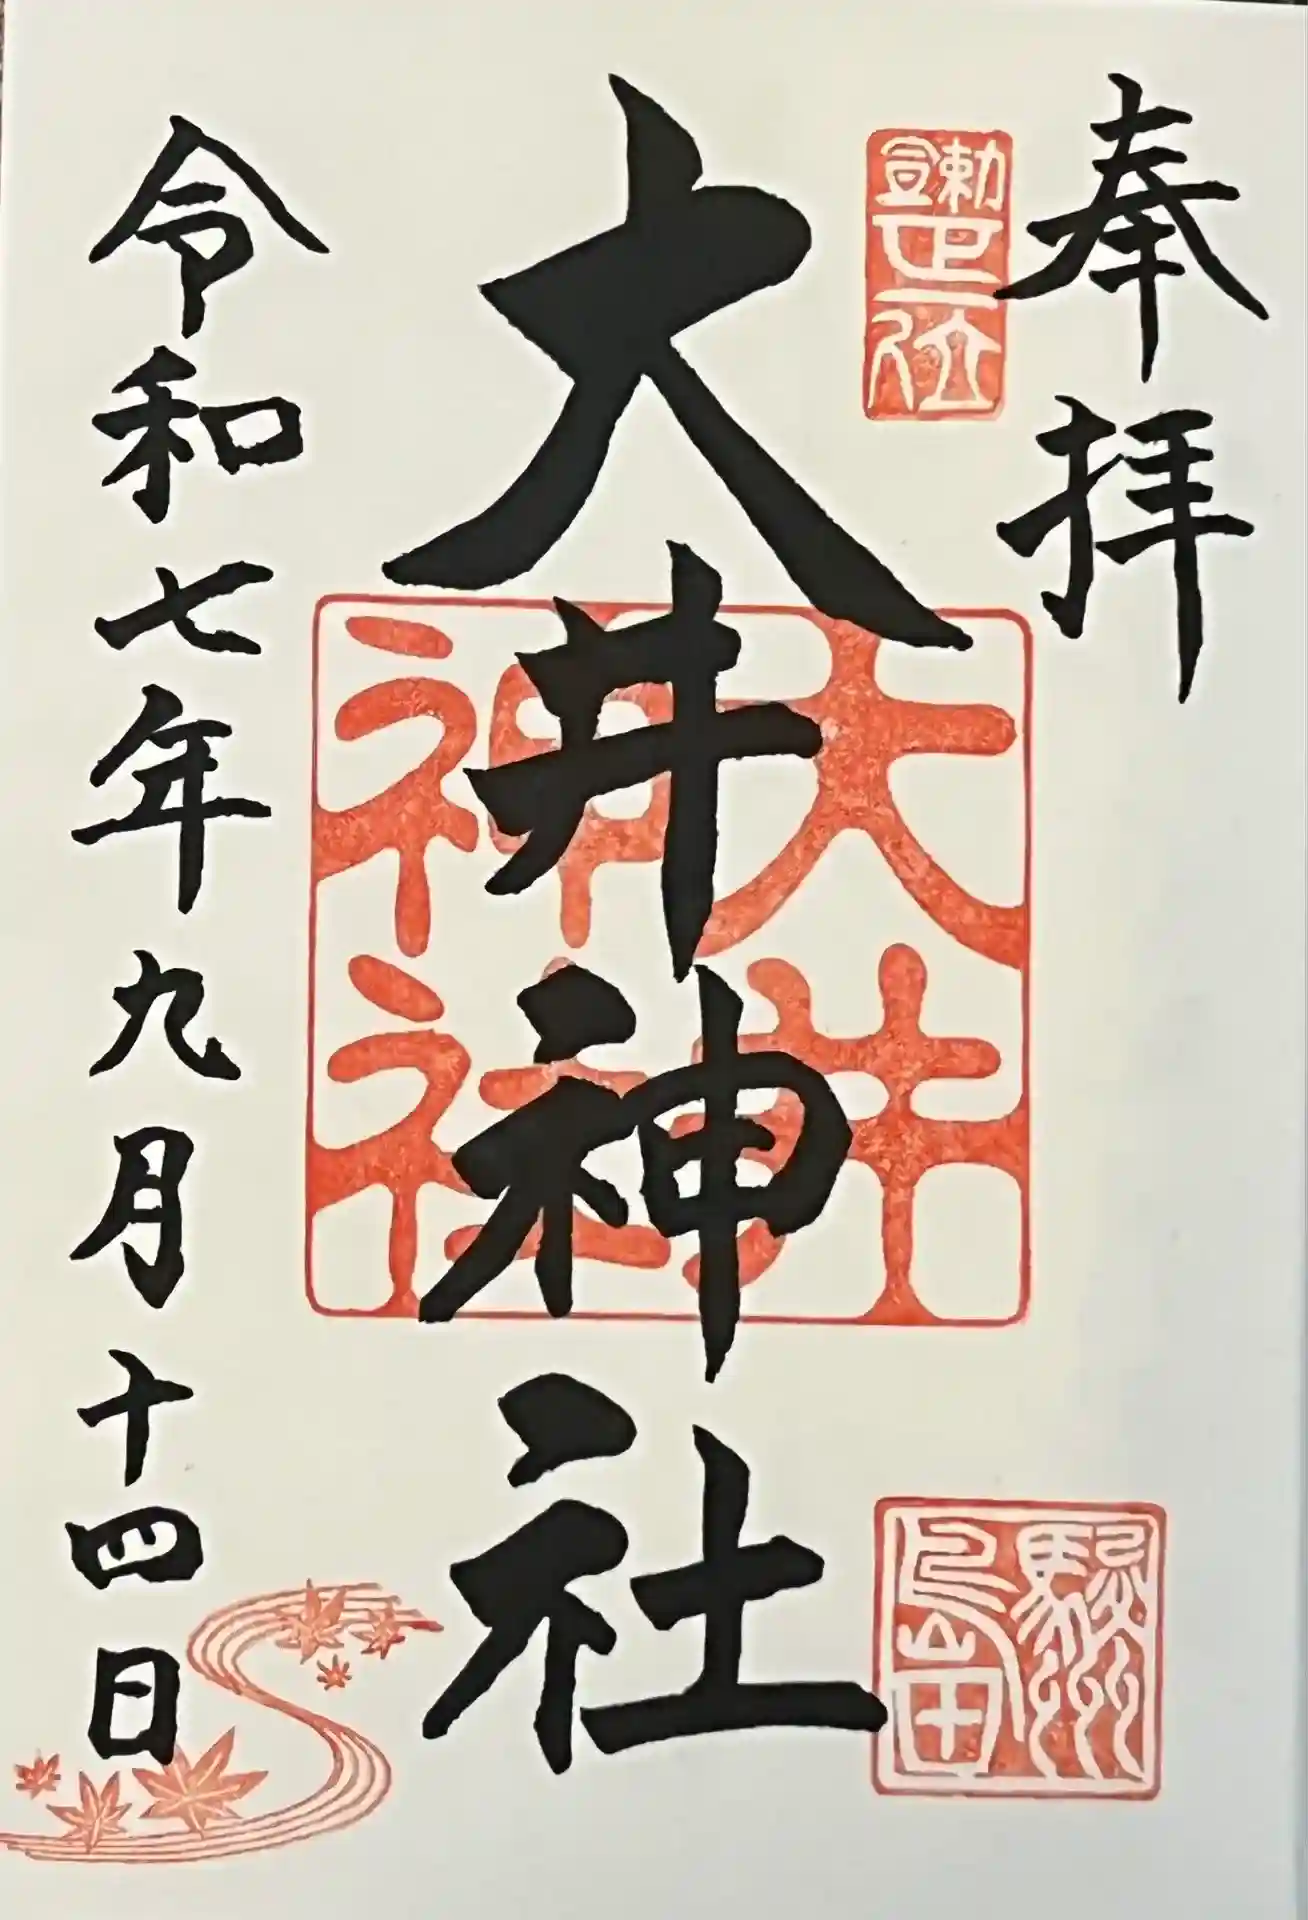 奉拝
勅宣
正一位
大井神社
大井
神社
駿州
島田
令和七年九月十四日